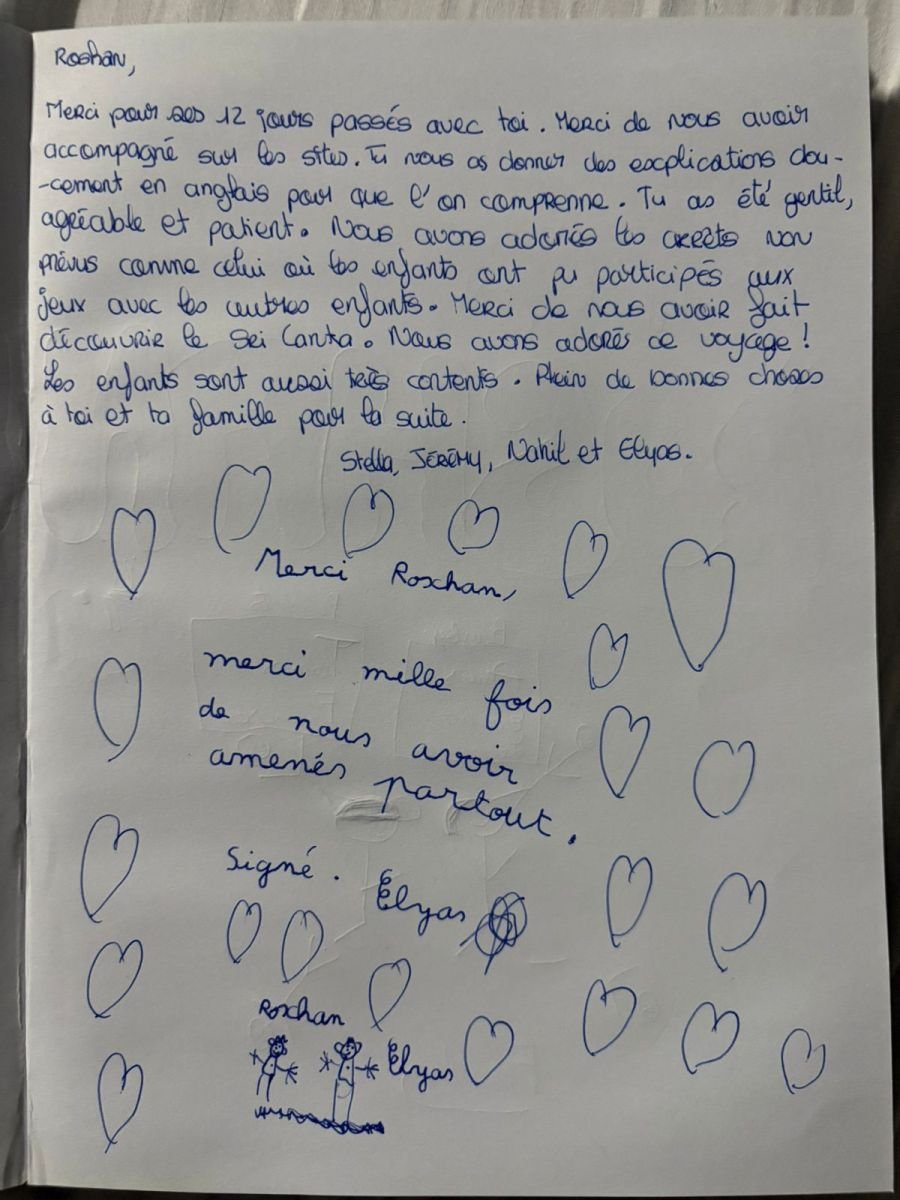 Roshan,
Merci pour ses 12 jours passés avec toi. Merci de nous avoir
accompagné sur les sites. Tu nous as donner des explications dou-
-cement en anglais pour que l'on comprenne. Tu as été gentil,
agréable et patient. Nous avons adorés les arrêts non
prévus comme celui où les enfants ont pu participés aux
jeux avec les autres enfants. Merci de nous avoir fait
découvrir le Sri Lanka. Nous avons adorés ce voyage !
Les enfants sont aussi très contents. Plein de bonnes choses
à toi et ta famille pour la suite.
Stella, JÉRÉMY, Nahil et Elyas.
Merci Roxhan,
merci mille fois
de nous avoir
amenés partout.
Signé. Élyas
Roxhan
Élyas